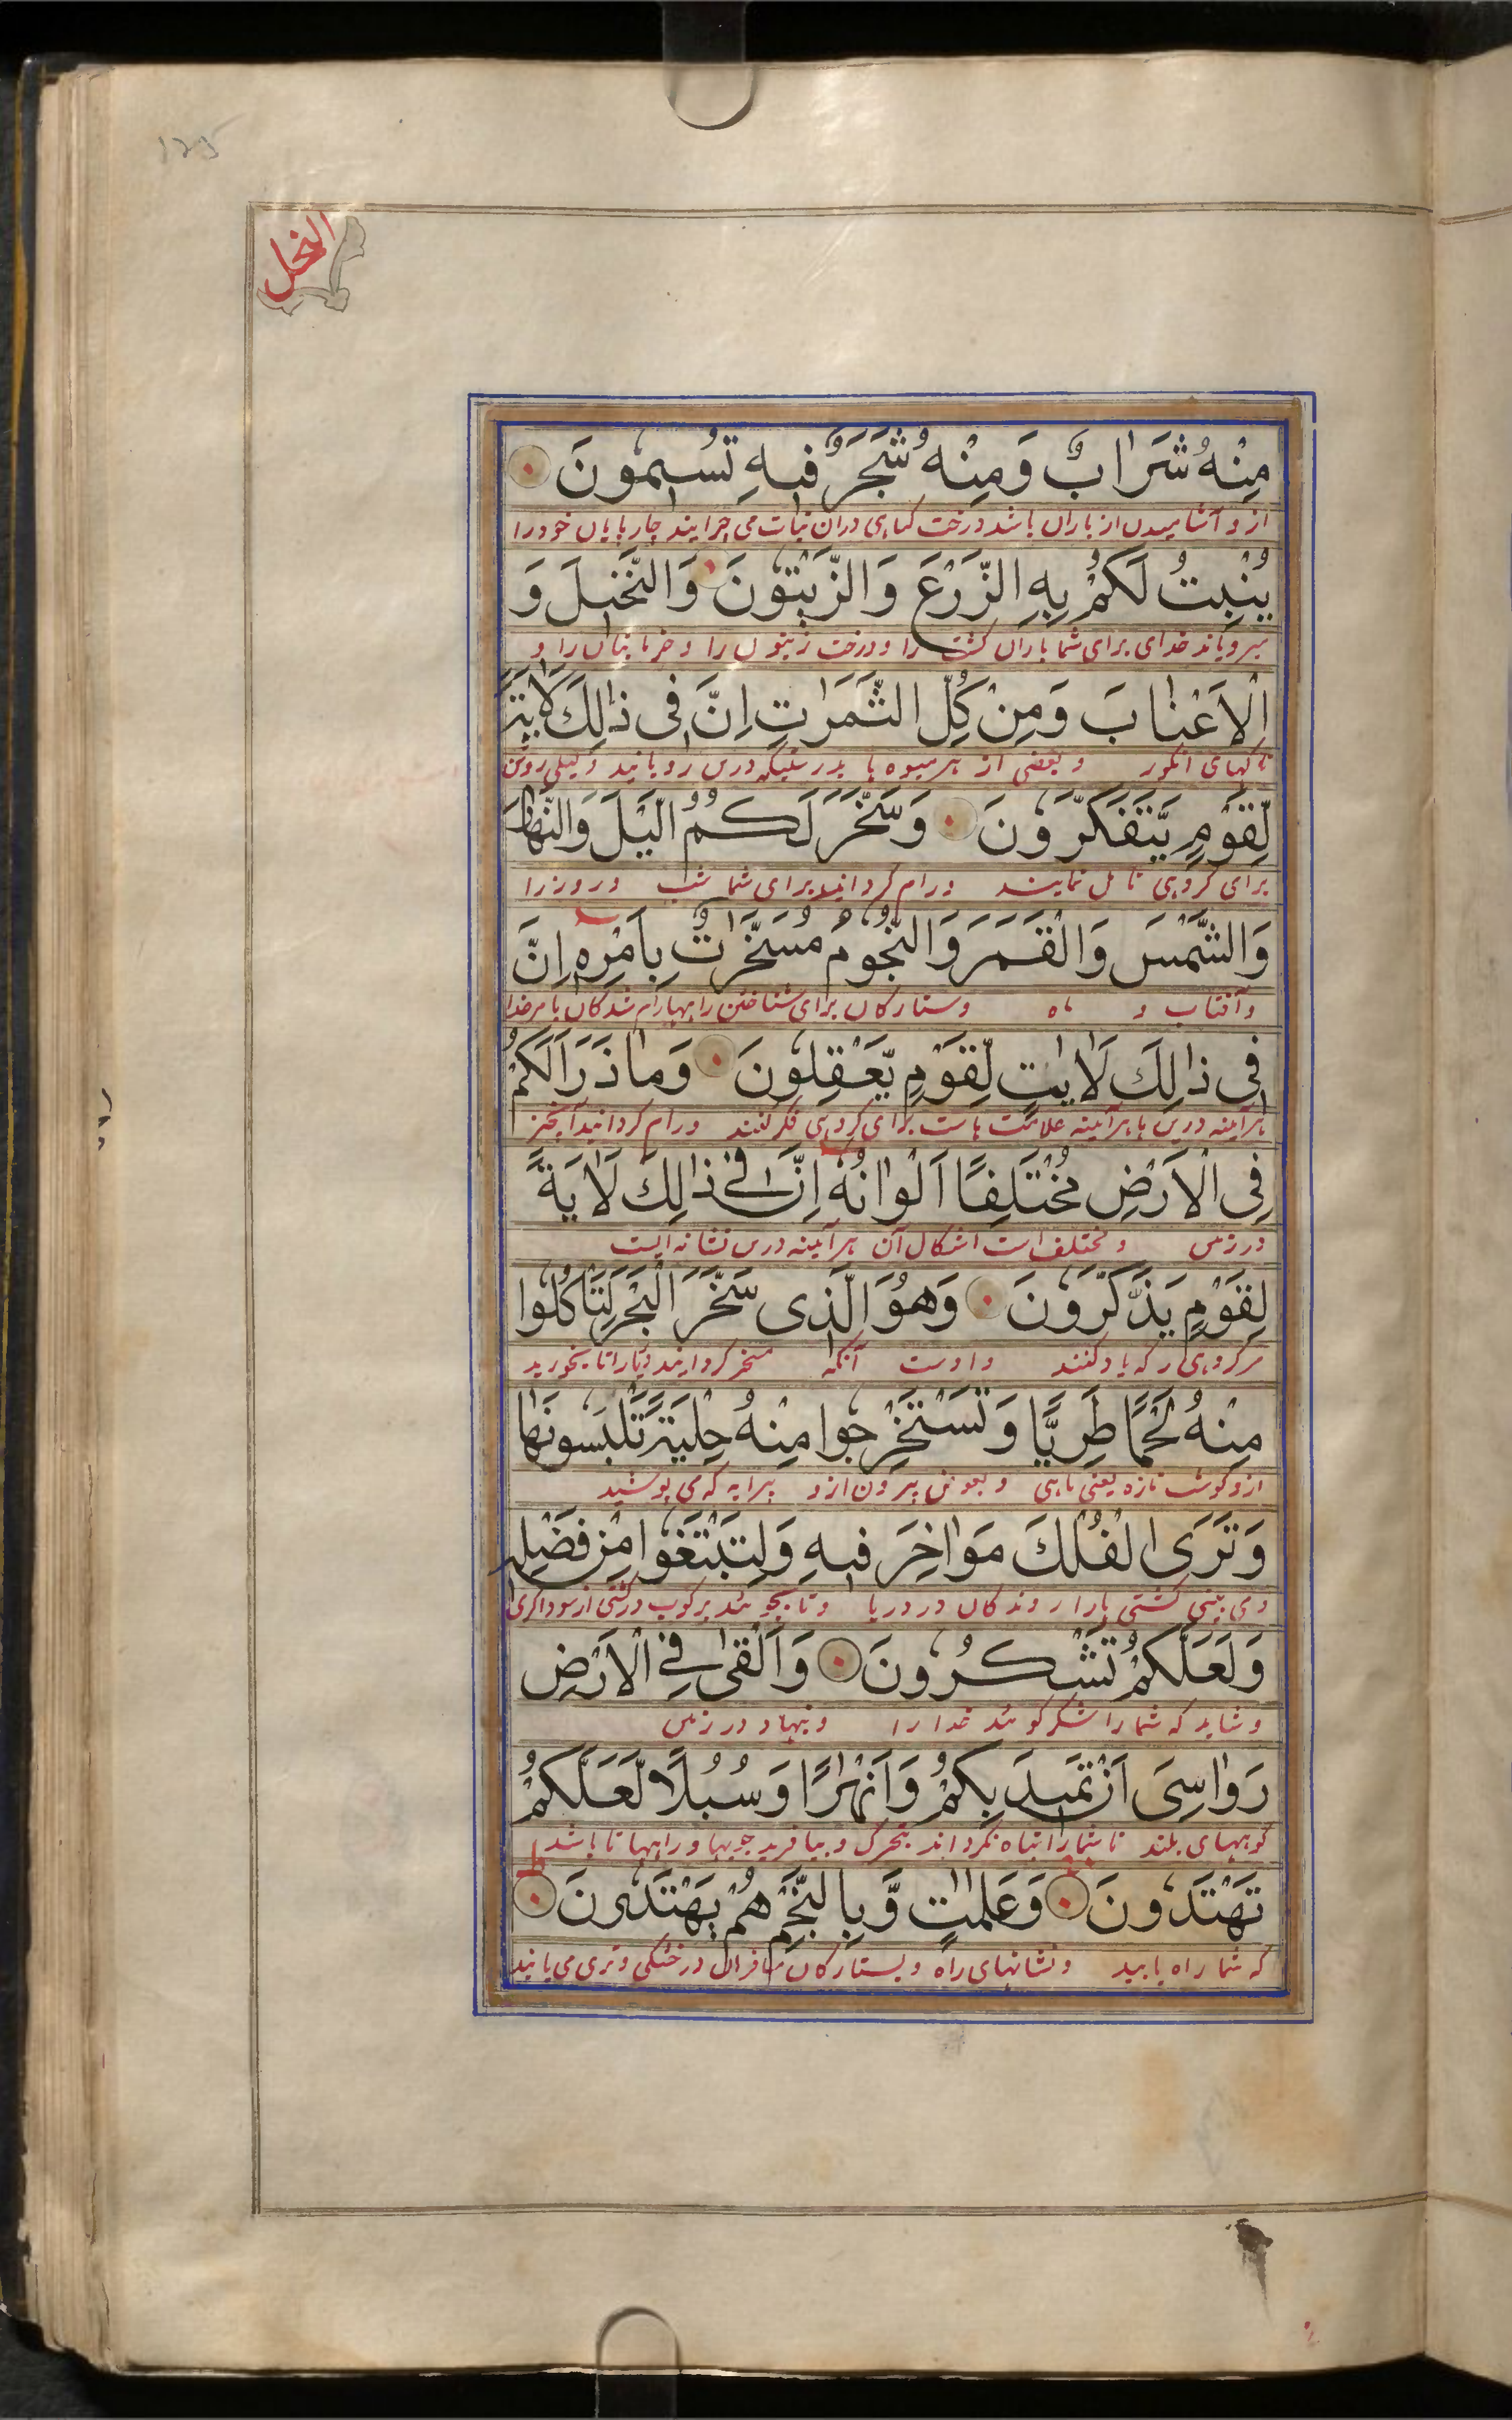 125
النحل
مِنْهُ شَرَابٌ وَمِنْهُ شَجَرٌ فِيهِ تُسِيمُونَ
ازو آشامیدن از باران باشد درخت گیاهی دران نبات می چرایند چارپایان خود را
يُنْبِتُ لَكُمْ بِهِ الزَّرْعَ وَالزَّيْتُونَ وَالنَّخِيلَ وَ
میرویاند خدای برای شما باران کشت را و درخت زیتون را و خرما بنان را و
الْاَعْنَابَ وَمِنْ كُلِّ الثَّمَرٰتِ اِنَّ فِى ذٰلِكَ لَاٰيَةً
تاکهای انگور و بعضی از هر میوه ها بدرستیکه درین رویانید دلیلی روشن
لِّقَوْمٍ يَّتَفَكَّرُونَ وَسَخَّرَ لَكُمُ الَّيْلَ وَالنَّهَارَ
برای گروهی تامل نمایند ورام گردانید برای شما شب و روز را
وَالشَّمْسَ وَالْقَمَرَ وَالنُّجُومُ مُسَخَّرَاتٌ بِاَمْرِهٖ اِنَّ
و آفتاب و ماه و ستارگان برای شناختن راهها رام شدگان بامر خدا
فِى ذٰلِكَ لَاٰيٰتٍ لِّقَوْمٍ يَّعْقِلُونَ وَمَا ذَرَاَ لَكُمْ
هرآینه درین ها هرآینه علامت هاست برای گروهی فکر کنند ورام گردانید
فِى الْاَرْضِ مُخْتَلِفًا اَلْوَانُهٗ اِنَّ فِى ذٰلِكَ لَاٰيَةً
در زمین و مختلف است اشکال آن هرآینه درین نشانه ایست
لِقَوْمٍ يَذَّكَّرُونَ وَهُوَ الَّذِى سَخَّرَ الْبَحْرَ لِتَاْكُلُوا
مر گروهی ر که یاد کنند و اوست آنکه مسخر گردانید دریا را تا بخورید
مِنْهُ لَحْمًا طَرِيًّا وَتَسْتَخْرِجُوا مِنْهُ حِلْيَةً تَلْبَسُونَهَا
ازو گوشت تازه یعنی ماهی و بیرون ازو پیرایه که می پوشید
وَتَرَى الْفُلْكَ مَوَاخِرَ فِيهِ وَلِتَبْتَغُوا مِنْ فَضْلِهٖ
و می بینی کشتی ها را روندگان در دریا و تا بجوئید برکوب در کشتی از سوداگری
وَلَعَلَّكُمْ تَشْكُرُونَ وَاَلْقٰى فِى الْاَرْضِ
و شاید که شما را شکر گوئید خدا را و نهاد در زمین
رَوَاسِىَ اَنْ تَمِيدَ بِكُمْ وَاَنْهٰرًا وَسُبُلًا لَّعَلَّكُمْ
کوههای بلند تا شما را تباه نگرداند بتحرک و بیافرید جویها و راهها تا باشد
تَهْتَدُونَ وَعَلٰمٰتٍ وَّبِالنَّجْمِ هُمْ يَهْتَدُونَ
که شما راه یابید و نشانهای راه و بستارگان مسافران در خشکی و تری می یابند